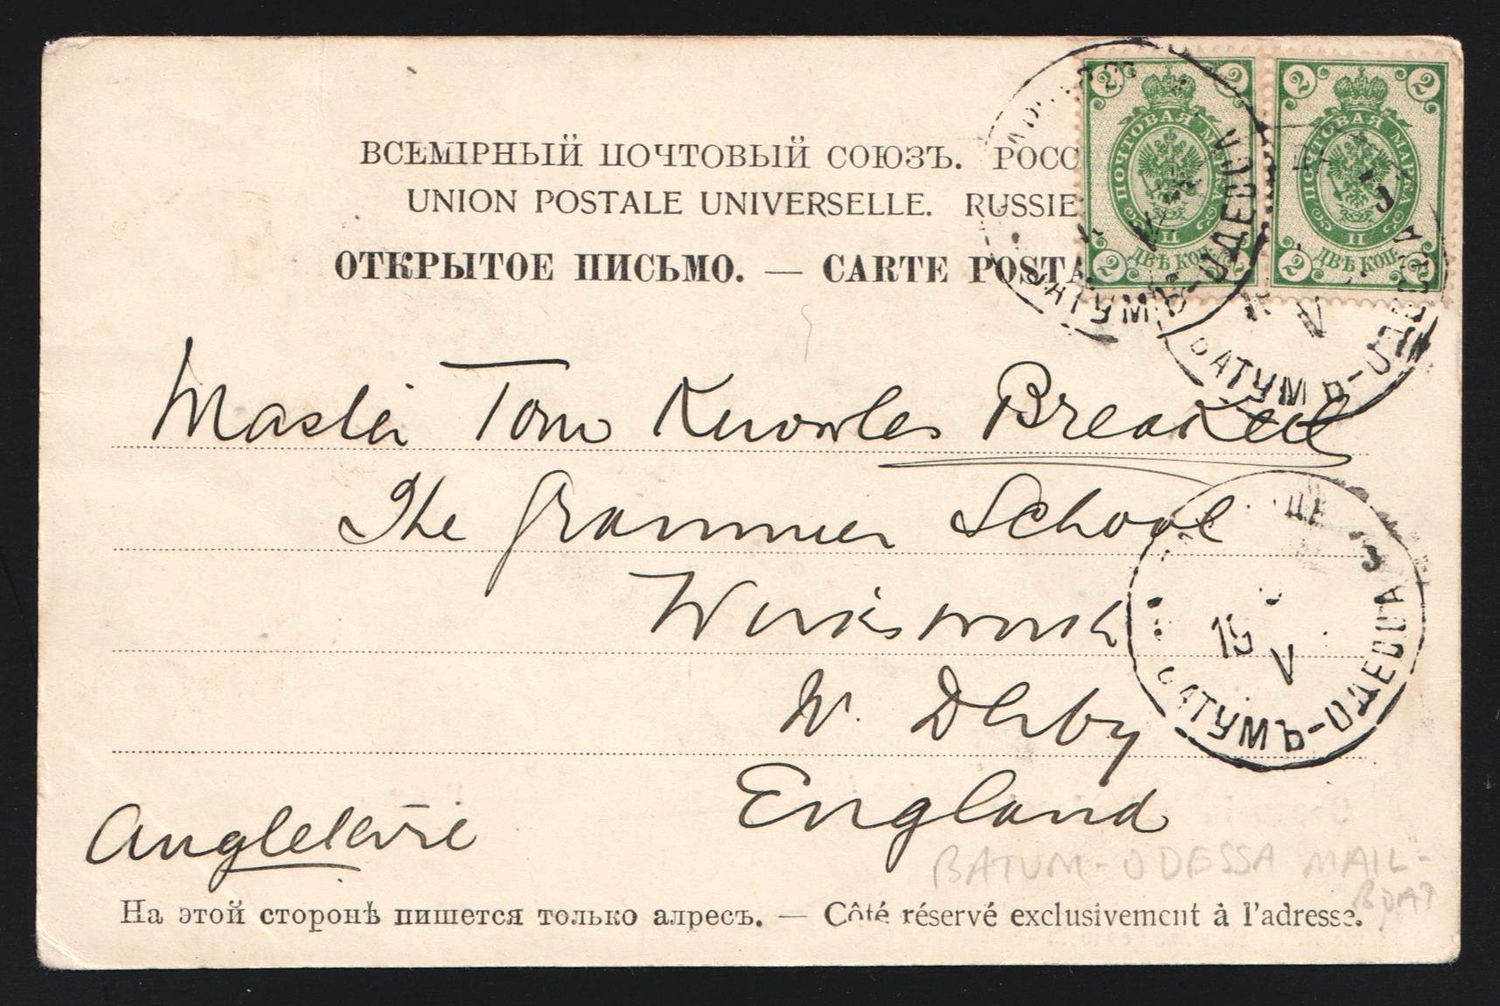 ВСЕМІРНЫЙ ПОЧТОВЫЙ СОЮЗЪ. РОСС
UNION POSTALE UNIVERSELLE. RUSSIE
ОТКРЫТОЕ ПИСЬМО. — CARTE POSTA
2 2 2 2
ПОЧТОВАЯ МАРКА
ДВѢ КОП.
2 2 2 2
ПОЧТОВАЯ МАРКА
ДВѢ КОП.
БАТУМЪ-ОДЕССА
БАТУМЪ-ОДЕССА
Master Tom Knowles
The Grammer School
Wirksworth
N. Derby
England
Angleterre
15
V
БАТУМЪ-ОДЕССА
BATUM-ODESSA MAIL-
BOAT
На этой сторонѣ пишется только адресъ. — Côté réservé exclusivement à l'adresse.